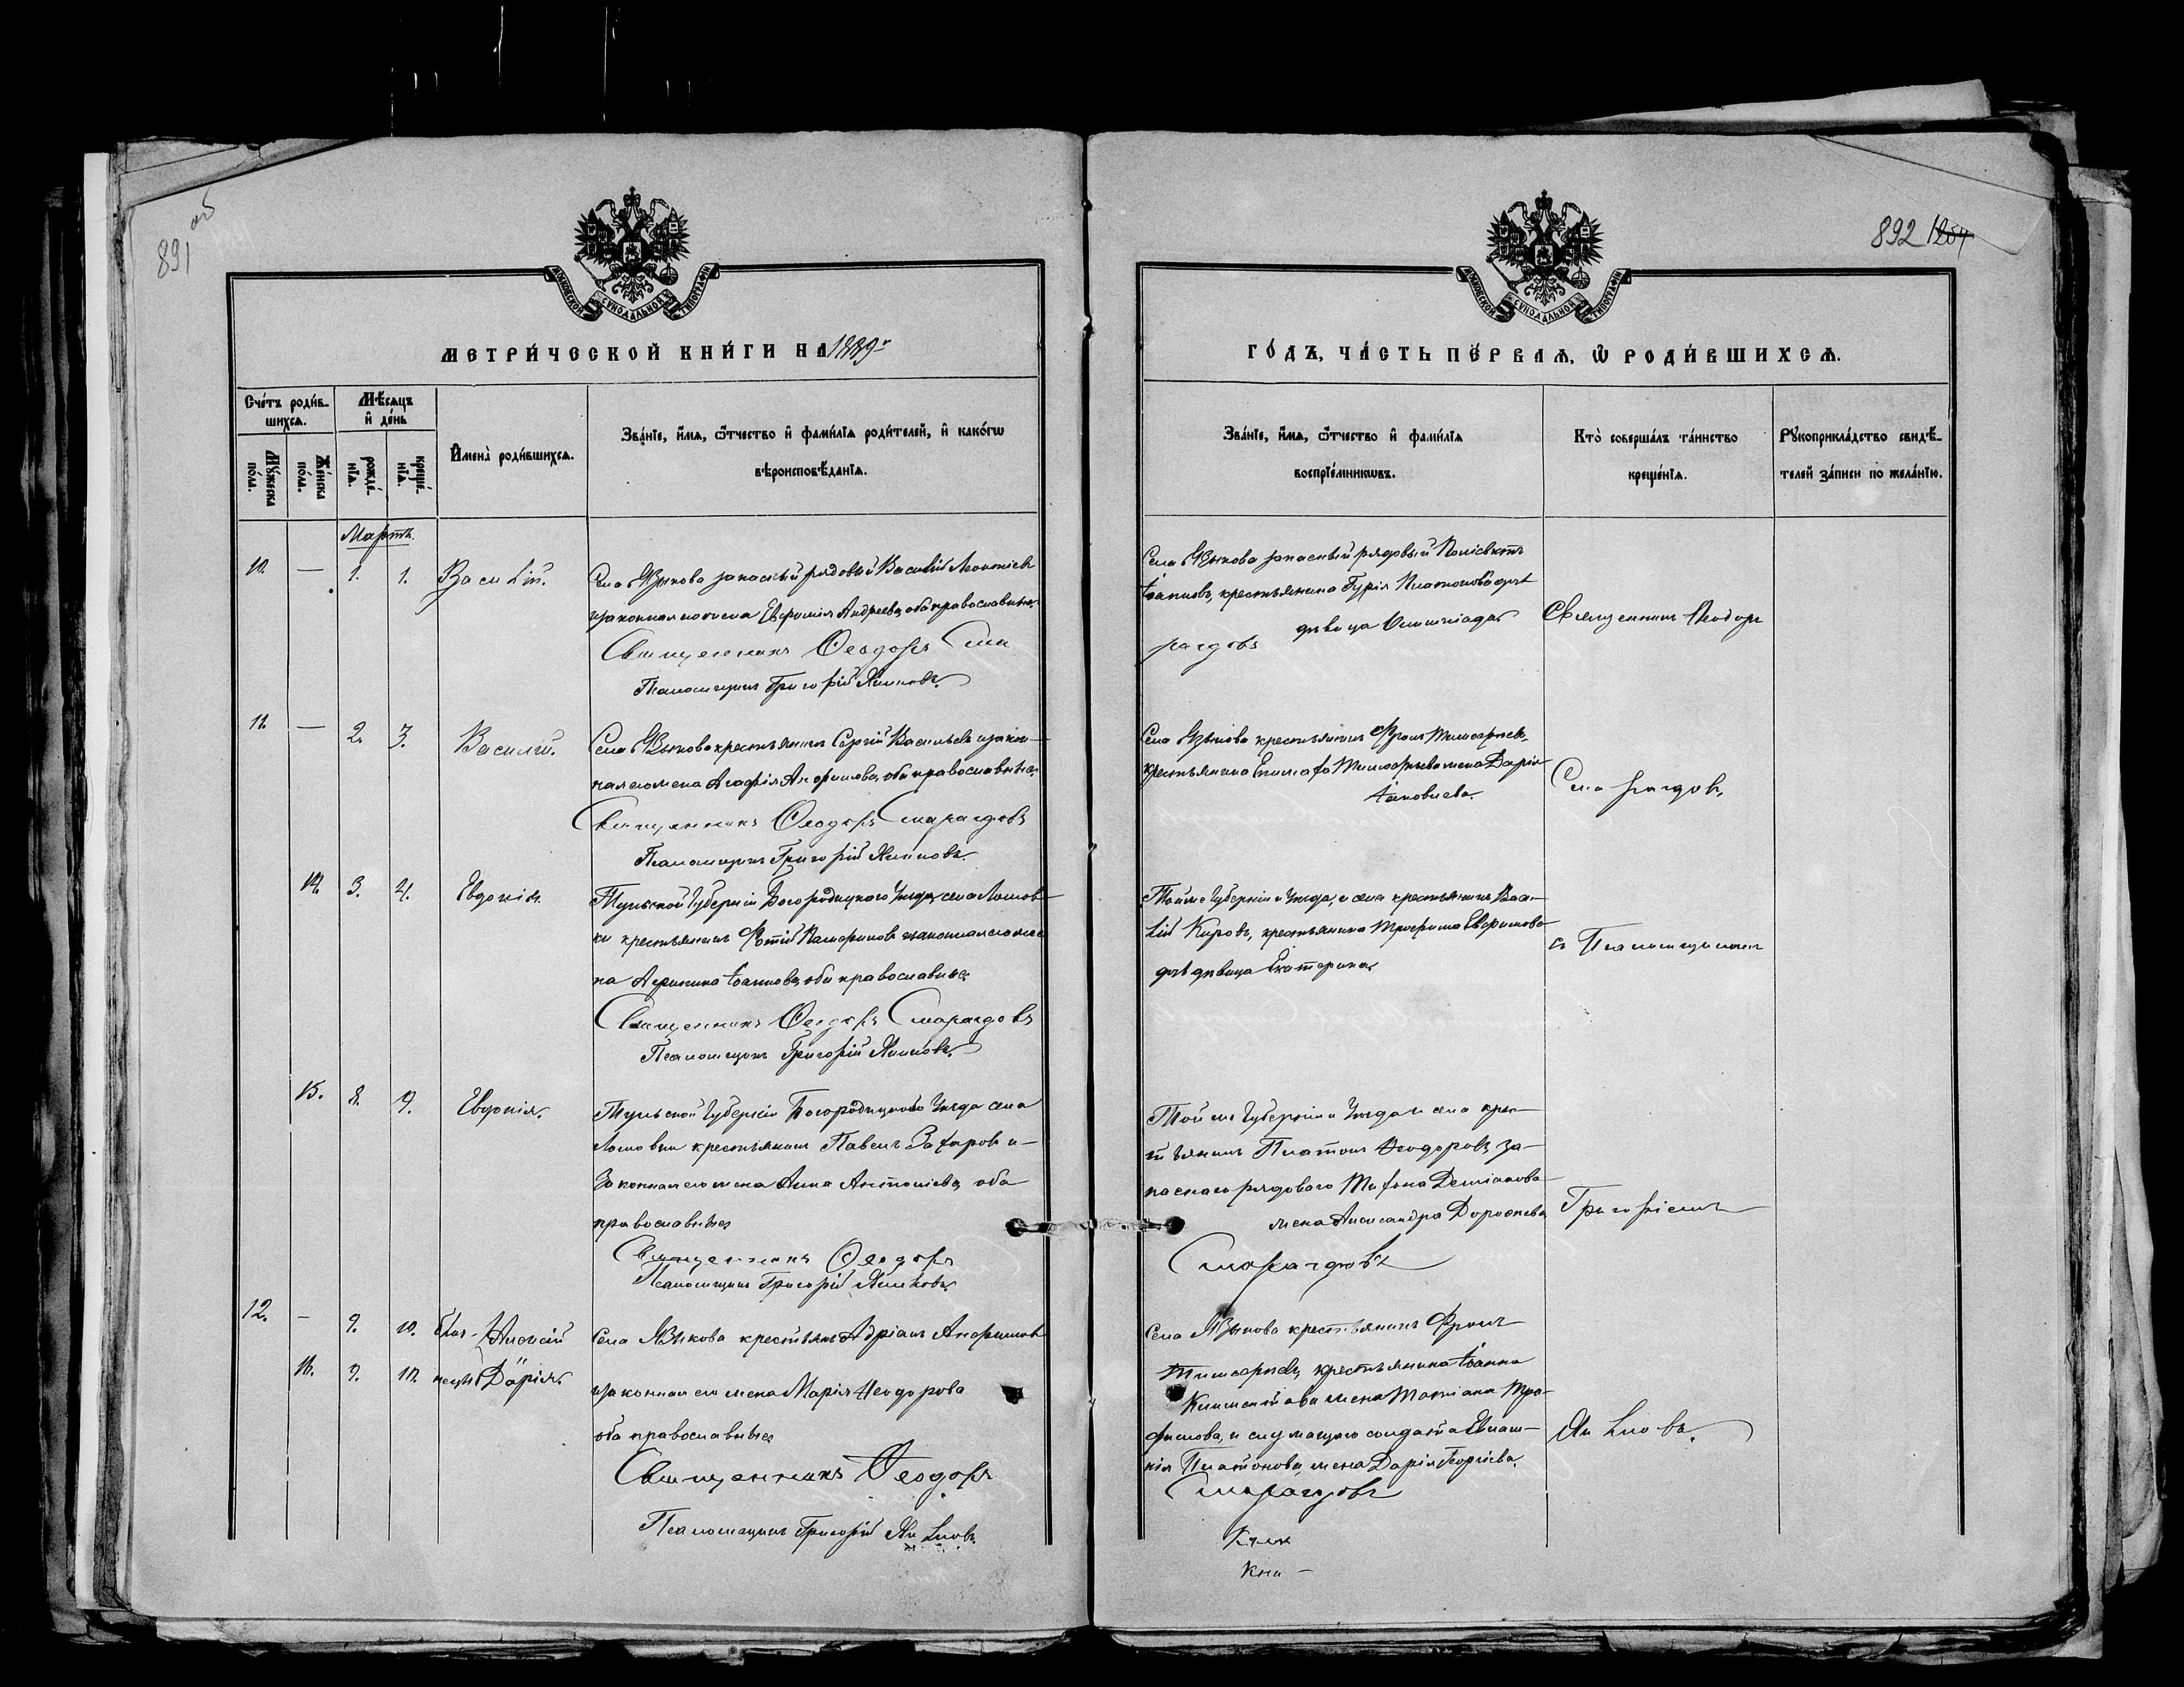 891 об
892 1254
МОСКОВСКОЙ СѴНОДАЛЬНОЙ ТИПОГРАФІИ
МОСКОВСКОЙ СѴНОДАЛЬНОЙ ТИПОГРАФІИ
МЕТРИ́ЧЕСКОЙ КНИ́ГИ НА 1889й
Сче́тъ роди́в-
шихсѧ.
Мѣ́сѧцъ
и҆ де́нь
Мꙋ́жеска
по́ла.
Же́нска
по́ла.
рожде́-
нїѧ.
креще́-
нїѧ.
И҆мена̀ роди́вшихсѧ.
Зва́нїе, и҆́мѧ, ѻ҆́тчество и҆ фами́лїѧ роди́телей, и҆ како́гѡ
вѣроисповѣ́данїѧ.
Мартъ.
10. — 1. 1. Василій.
Села Языкова запасный рядовый Василій Леонтіевъ
и законная его жена Евфимія Андреева, оба православные.
Священникъ Ѳеодоръ Сма
Псаломщикъ Григорій
11. — 2. 3. Василій.
Села Языкова крестьянинъ Сергій Васильевъ и закон-
ная его жена Агафія Анфимова, оба православные.
Священникъ Ѳеодоръ Смарагдовъ
Псаломщикъ Григорій
14. 3. 4. Евдокія.
Тульской Губерніи Богородицкаго Уѣзда, села Ломов-
ки крестьянинъ Фотій и законная его же-
на Іоаннова, оба православные.
Священникъ Ѳеодоръ Смарагдовъ
Псаломщикъ Григорій
15. 8. 9. Евдокія.
Тульской Губерніи Богородицкаго Уѣзда села
Ломовки крестьянинъ Павелъ Захаровъ и
законная его жена Анна Антоніева, оба
православные
Священникъ Ѳеодоръ
Псаломщикъ Григорій
12. — 9. 10. близ- Алексій
16. 9. 10. нецы Дарія.
Села Языкова крестьянъ Адріанъ Анфимовъ
и законная его жена Марія Ѳеодорова
оба православные
Священникъ Ѳеодоръ
Псаломщикъ Григорій
ГО́ДЪ, ЧА́СТЬ ПЕ́РВАѦ, Ѡ҆ РОДИ́ВШИХСѦ.
Зва́нїе, и҆́мѧ, ѻ҆́тчество и҆ фами́лїѧ
воспрїе́мникѡвъ.
Кто̀ соверша́лъ та́инство
креще́нїѧ.
Рꙋкоприкла́дство свидѣ́-
телей за́писи по жела́нїю.
Села Языкова запасный рядовый Поліевктъ
Іоанновъ, крестьянина Гурія Платонова дочь
дѣвица Олимпіада
рагдовъ
Священникъ Ѳеодоръ
Села Языкова крестьянинъ Фролъ Тимофеевъ,
крестьянина Тимофеева жена Дарія
Іаковлева.
Смарагдовъ,
Той же Губерніи и Уѣзда, и села крестьянинъ Васи-
лій Кировъ, крестьянина Трофима Евфимова
дочь дѣвица Екатерина.
съ Псаломщикомъ
Той же Губерніи и Уѣзда и села крес-
тьянинъ Платонъ Ѳеодоровъ, за-
паснаго рядоваго Дементіанова
жена Александра Дороѳеева
Смарагдовъ
Григоріемъ
Села Языкова крестьянинъ Фролъ
Тимофеевъ, крестьянина Іоанна
Климентова жена Татіана Тро-
фимова, и служащаго солдата
Платонова, жена Дарія Георгіева.
Смарагдовъ